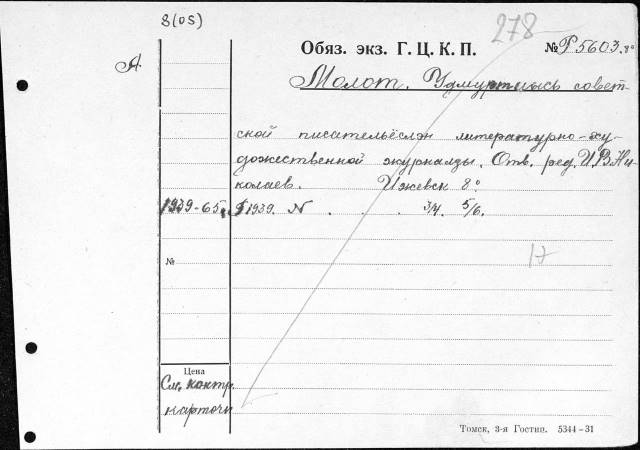 8(05)
278
А.
Обяз. экз. Г. Ц. К. П. № Р5603. 8°
Молот. Удмуртиысь совет-
ской писательёслэн литературно-ху-
дожественной журналзы. Отв. ред. И.В. Ни-
колаев. Ижевск 8°.
1939-65. 1939. N . . . 3/4. 5/6.
№
17
Цена
См. контр.
карточк
Томск, 3-я Гостип. 5344-31